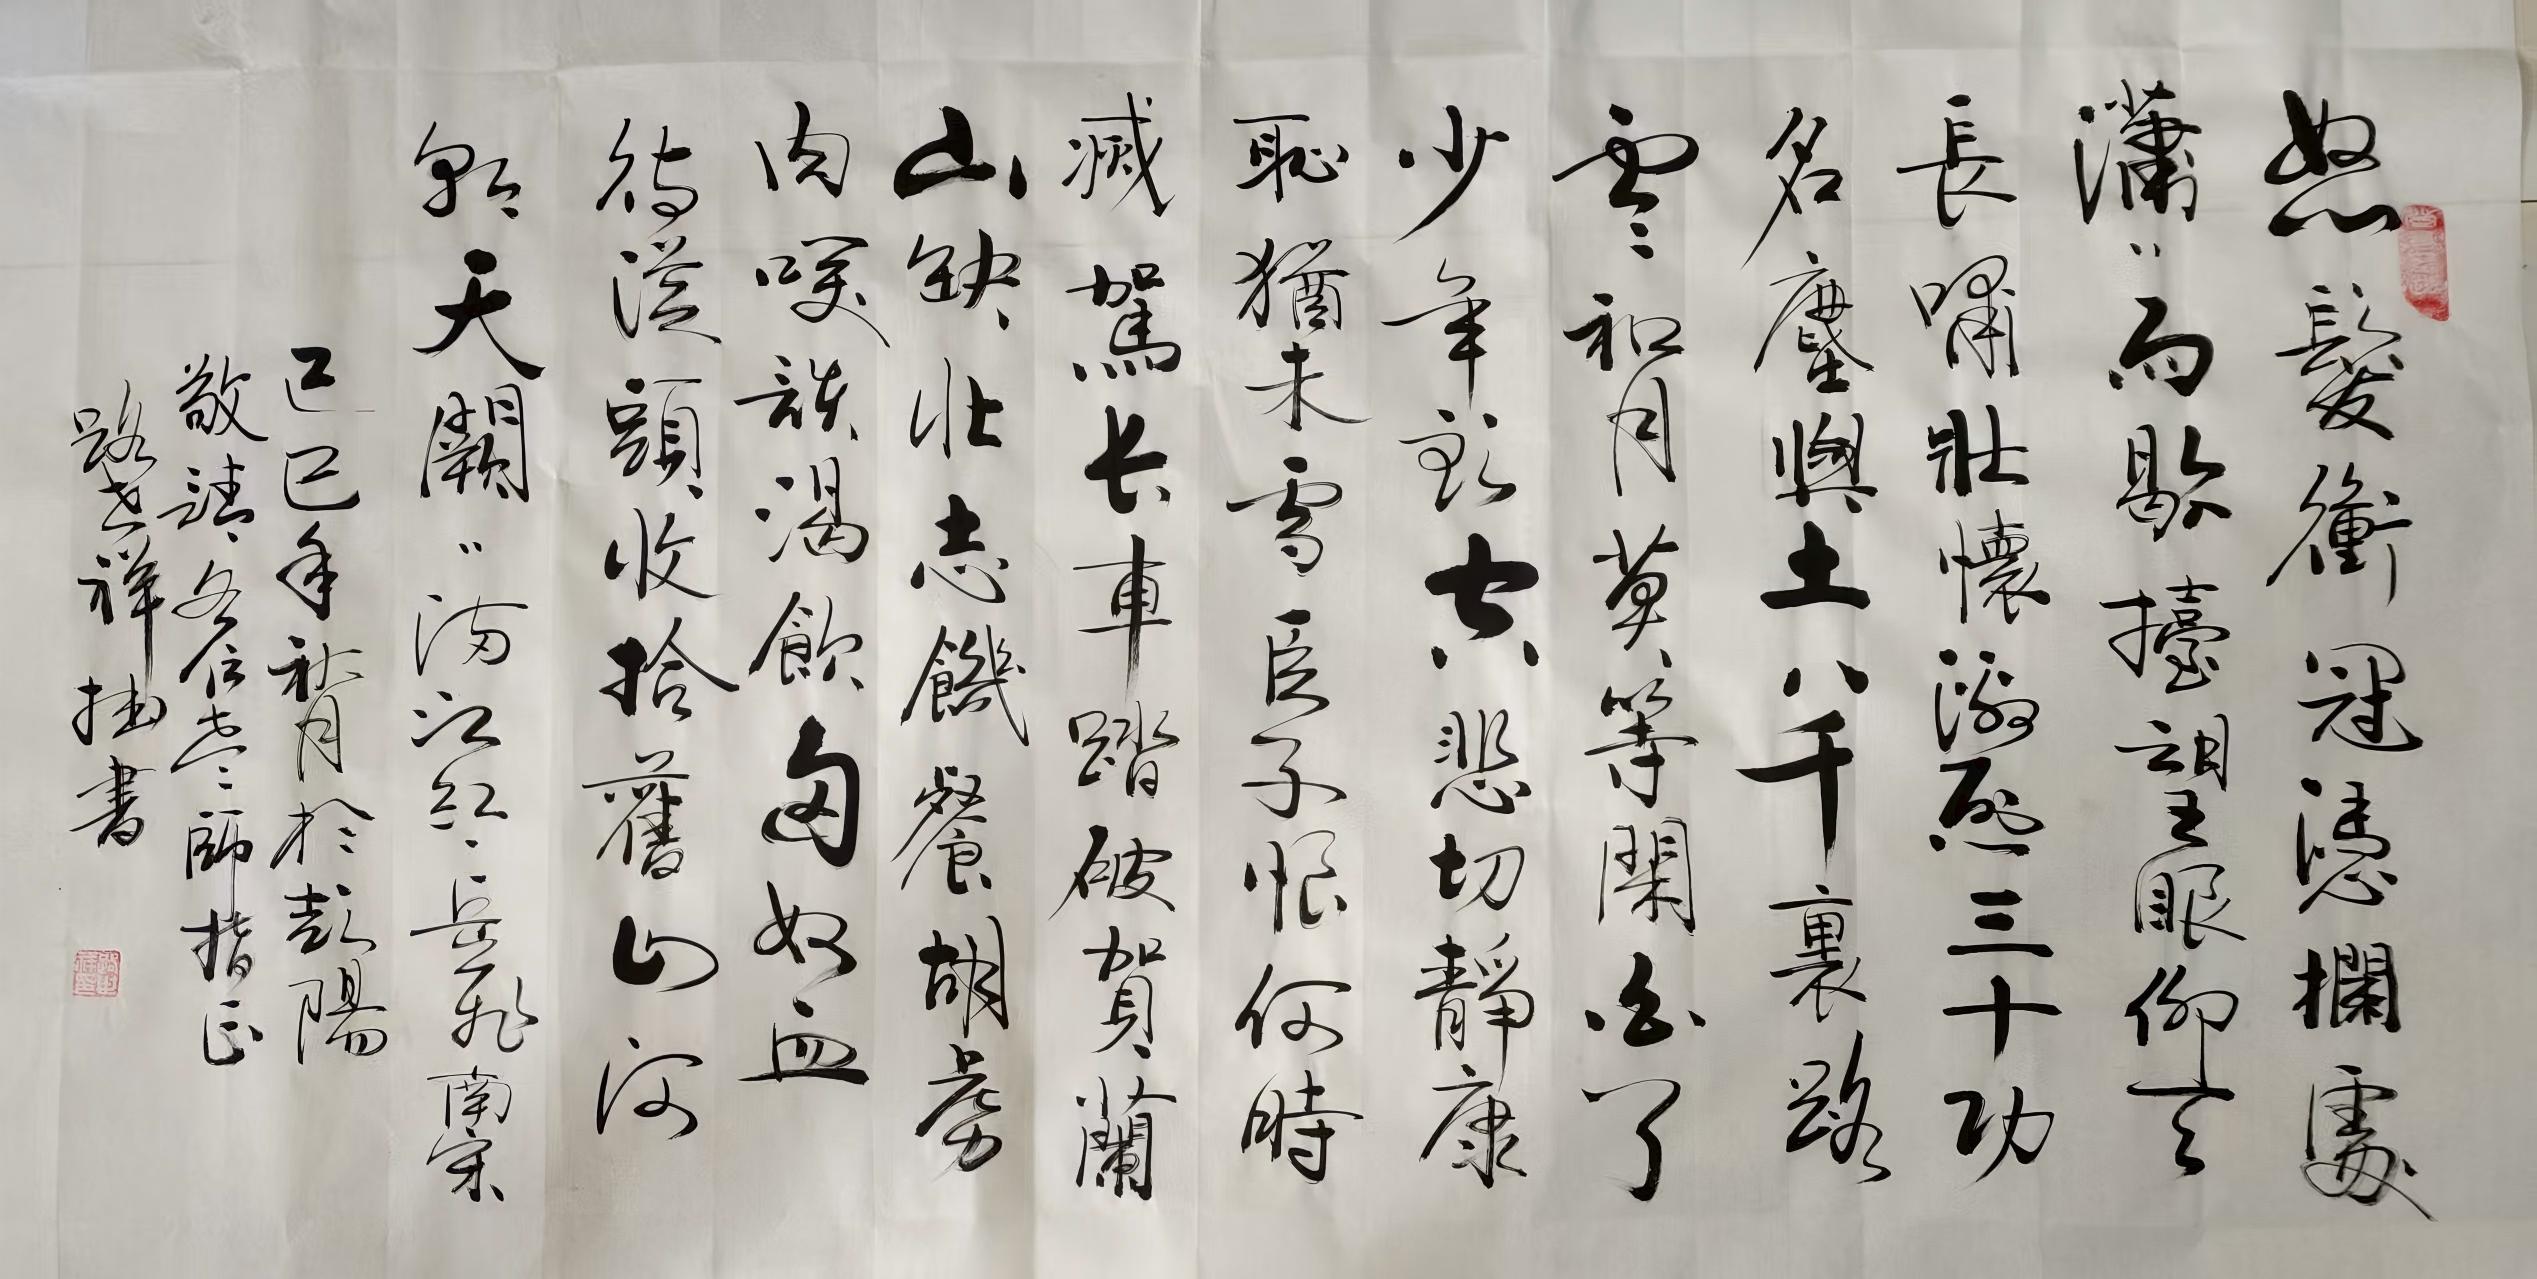 怒髮衝冠憑欄處
瀟〃雨歇擡望眼仰天
長嘯壯懷激烈三十功
名塵與土八千裏路
雲和月莫等閑白了
少年頭空悲切靜康
恥猶未雪臣子恨何時
滅駕长車踏破賀蘭
山缺壯志饑餐胡虜
肉咲談渴飲匈奴血
待從頭收拾舊山河
朝天闕〃滿江紅岳飛南宋
己巳年秋月於彭陽
敬請各位老師指正
路祥拙書